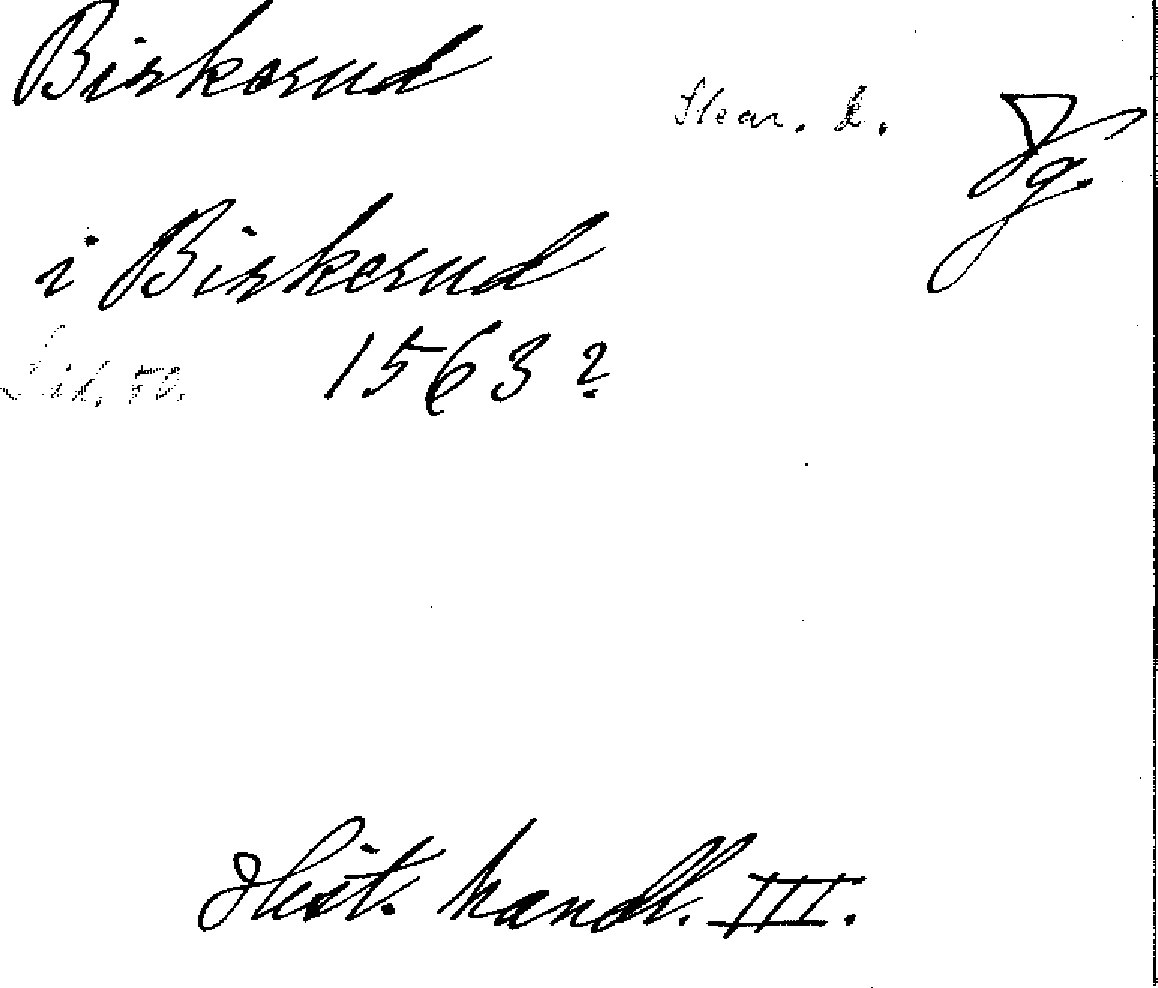 Birkerud
Skar. l. Vg.
i Birkerud
1563?
Hist. handl. III.